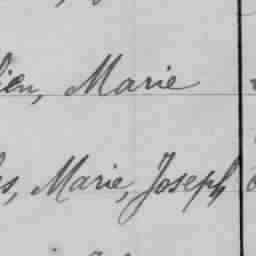 lien, Marie
es, Marie, Joseph